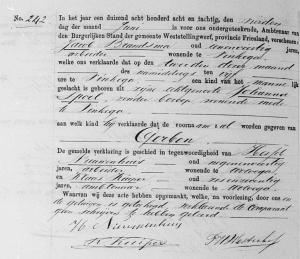 No. 242
In het jaar een duizend acht honderd acht en tachtig, den
dag der maand Juni is voor ons ondergeteekende, Ambtenaar van
den Burgerlijken Stand der gemeente Weststellingwerf, provincie Friesland, verschenen:
Jacob Brandsma oud
arbeider wonende te Finkega
welke ons verklaarde dat op den tweeden dezer maand
des namiddags ten vijf
ure te Finkega een kind van het mannelijk
geslacht is geboren uit zijne echtgenoote Johanna
Spoel, zonder beroep, wonende mede
te Finkega
aan welk kind hij verklaarde dat de voornaam zal worden gegeven
van Gerben
De gemelde verklaring is geschied in tegenwoordigheid van
Nauwenhuis oud
jaren, arbeider wonende te Wolvega
en Klaas Kuiper oud
jaren, ambtenaar wonende te Wolvega
Waarvan wij deze akte hebben opgemaakt, welke, na voorlezing, door ons en
de getuigen is geteekend, verklarende de Comparant
geen schrijven te hebben geleerd.
Nauwenhuis
K Kuiper